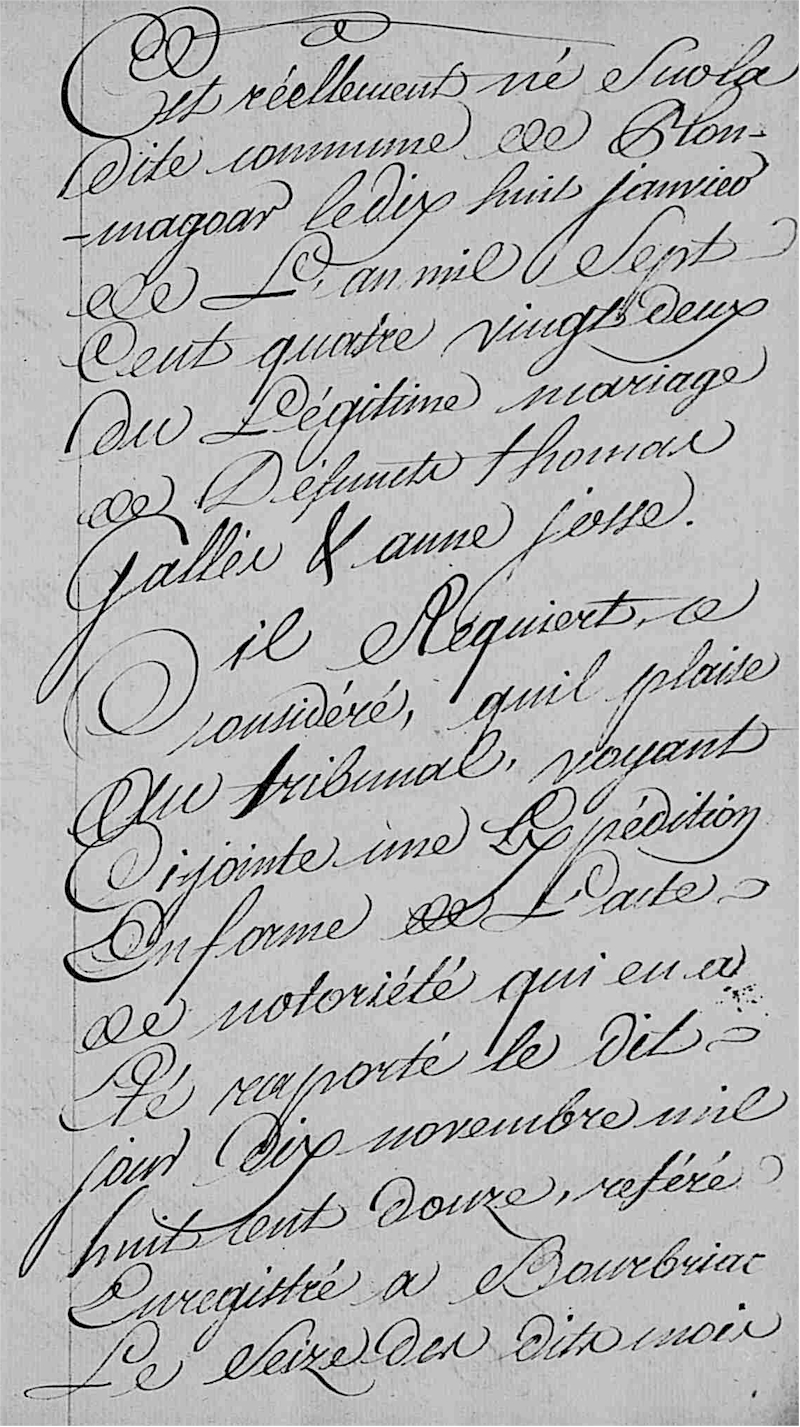 Est réellement né Sur la
dite commune de Plou-
-magoar le dix huit janvier
de L'an mil Sept
Cent quatre vingt deux
du Légitime mariage
de Défunts thomas
Galles & anne josse.
il Requiert, ce
considéré, quil plaise
Au tribunal, voyant
Cijointe une Expédition
En forme de L'acte
de notoriété qui en a
Eté raporté le dit
jour Dix novembre mil
huit cent douze, reféré
Enregistré a Bourbriac
Le Seize des dits mois